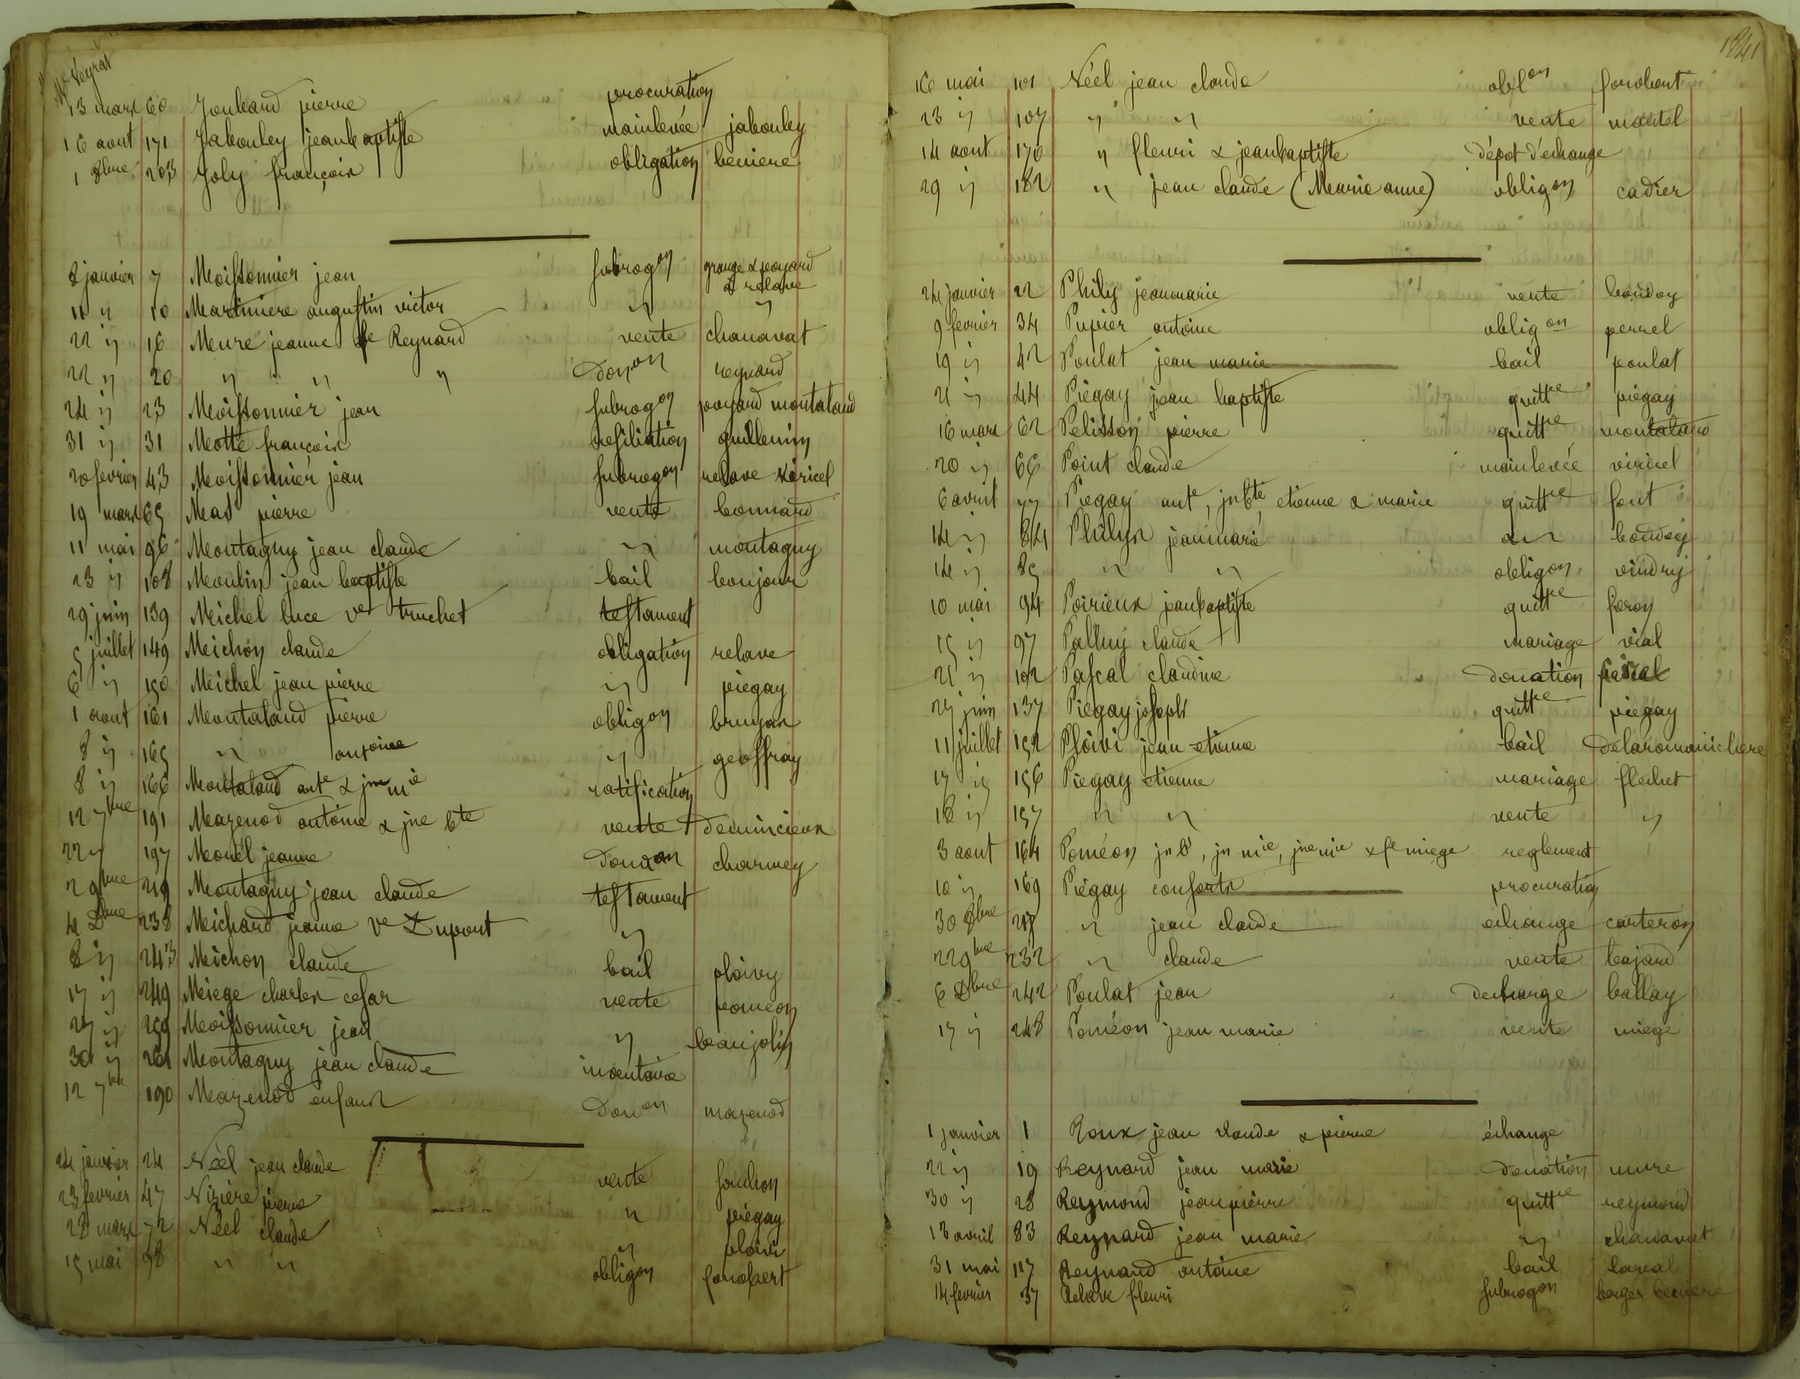 Me Veyrat
13 mars 60 Joubard pierre procuration
16 aout 171 Jabouley jeanbaptiste mainlevée jabouley
1 8bre 203 Joly françois obligation beniere
8 janvier 7 Moissonnier jean subrogon grange & poyard
& relave
11 " 10 Martiniere augustin victor " "
22 " 16 Mure jeanne fe Reynard vente chanavat
22 " 20 " " " donon reynard
24 " 23 Moissonnier jean subrogon poyard montaland
31 " 31 Motte françois resiliation guillemin
20 fevrier 43 Moissonnier jean subrogon relave & viricel
19 mars 65 Mas pierre vente bonnard
11 mai 96 Montagny jean claude " montagny
23 " 108 Moulin jean baptiste bail bonjour
29 juin 139 Michel luce Ve truchet testament
5 juillet 149 Michon claude obligation relave
6 " 150 Michel jean pierre " piegay
1 aout 161 Montaland pierre obligon bruyas
8 " 165 " antoine " geoffray
8 " 166 Montaland ant & jne mie ratification
12 7bre 191 Mazenod antoine & jne bte vente demincieux
22 " 197 Morel jeanne donaon charmey
2 9bre 219 Montagny jean claude testament
4 Dbre 238 Michard jeanne Ve Dupont "
8 " 243 Michon claude bail ploivy
17 " 249 Miege charles cesar vente pomeon
27 " 259 Moissonnier jean " beaujolin
30 " 261 Montagny jean claude inventaire
12 7bre 190 Mazenod enfants donon mazenod
24 janvier 24 Néel jean claude vente fouchon
23 fevrier 47 Nizière pierre " piégay
28 mars 72 Néel claude " ploivi
15 mai 98 " " obligon fonobert
1841
16 mai 101 Néel jean claude oblon fonobert
23 " 107 " " vente montel
14 aout 170 " fleuri & jeanbaptiste dépot d'echange
29 " 182 " jean claude (Meurie anne) obligon cadier
24 janvier 22 Phily jeanmarie vente bouday
9 fevrier 34 Pupier antoine obligon perrel
19 " 42 Poulat jean marie bail poulat
21 " 44 Piégay jean baptiste quittce piégay
16 mars 62 Pelisson pierre quittce montaland
20 " 66 Point claude mainlevée viricel
6 avril 77 Piegay ante, jnbte, etienne & marie quittce font
14 " 84 Phily jeanmarie " bouday
14 " 85 " " obligon vindry
10 mai 94 Poirieux jeanbaptiste quittce feron
15 " 97 Palluy claude mariage vial
21 " 102 Pascal claudine donation pascal
27 juin 137 Piegay joseph quittce piegay
11 juillet 152 Ploivi jean etienne bail delaromanichere
17 " 156 Piegay etienne mariage flechet
18 " 157 " " vente "
3 aout 164 Poméon jn b, jn mie, jne mie & fe miege reglement
10 " 169 Piégay consorts procuration
30 8bre 218 " jean claude echange carteron
22 9bre 232 " claude vente bajard
6 Dbre 242 Poulat jean decharge ballay
17 " 248 Poméon jean marie vente miege
1 janvier 1 Roux jean claude & pierre échange
22 " 19 Reynard jean marie donation mure
30 " 28 Reymond jean pierre quittce reymond
13 avril 83 Reynard jean marie " chanavat
31 mai 117 Reynaud antoine bail laval
14 fevrier 37 Relave fleuri subrogon berger beniere